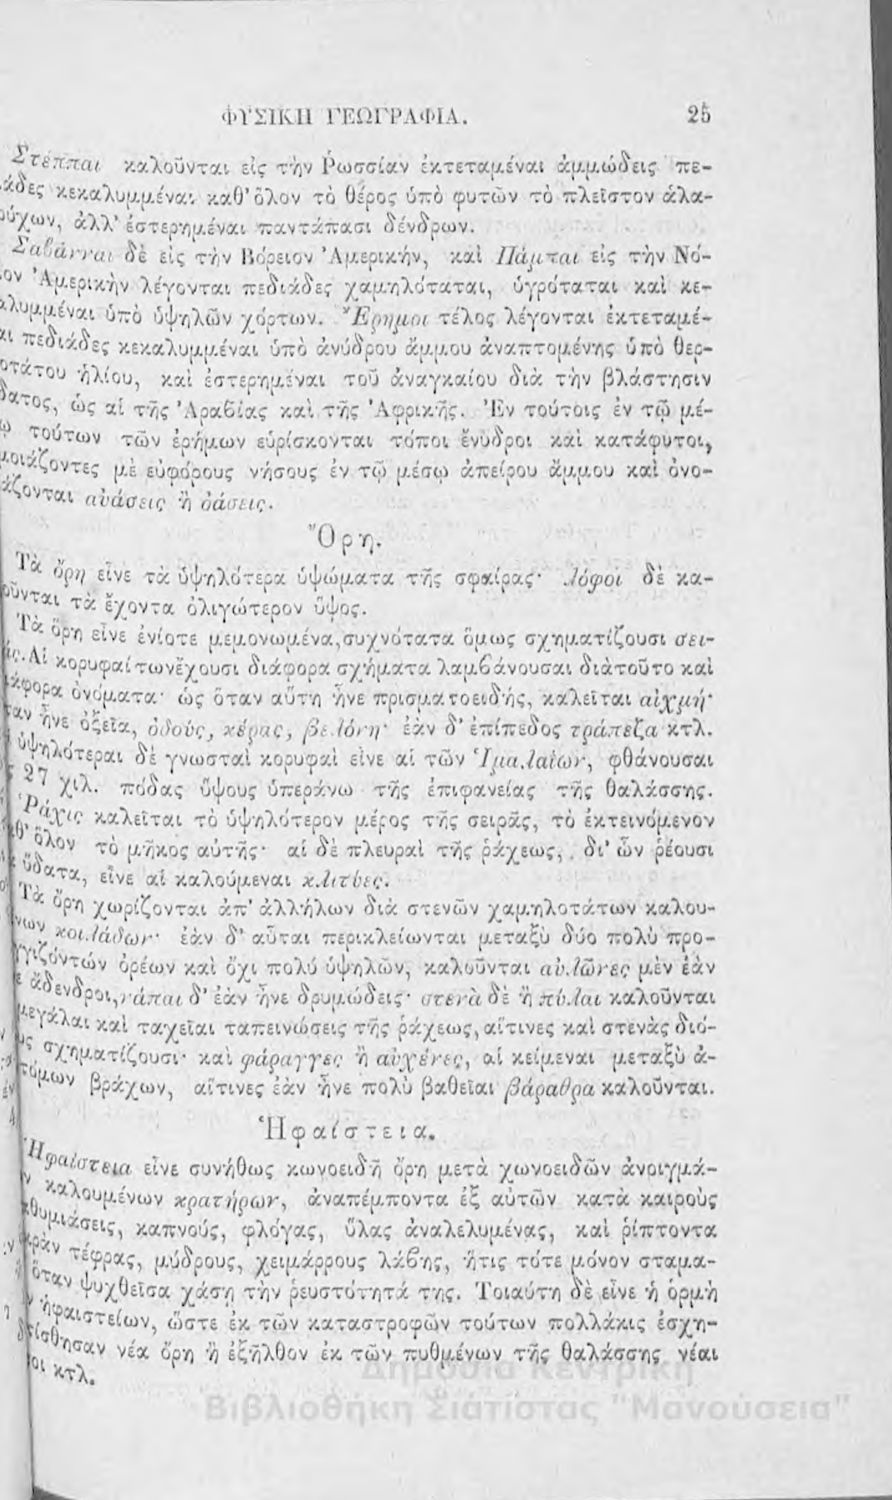 ΦΥΣΙΚΗ ΓΕΩΓΡΑΦΙΑ. 25
Στέππαι καλοῦνται εἰς τὴν Ῥωσσίαν ἐκτεταμέναι ἀμμώδεις πε-
άδες κεκαλυμμέναι καθ' ὅλον τὸ θέρος ὑπὸ φυτῶν τὸ πλεῖστον ἁλα-
ούχων, ἀλλ' ἐστερημέναι παντάπασι δένδρων.
Σαβάνναι δὲ εἰς τὴν Βόρειον Ἀμερικήν, καὶ Πάμπαι εἰς τὴν Νό-
ον Ἀμερικὴν λέγονται πεδιάδες χαμηλόταται, ὑγρόταται καὶ κε-
αλυμμέναι ὑπὸ ὑψηλῶν χόρτων. Ἔρημοι τέλος λέγονται ἐκτεταμέ-
αι πεδιάδες κεκαλυμμέναι ὑπὸ ἀνύδρου ἄμμου ἀναπτομένης ὑπὸ θερ-
οτάτου ἡλίου, καὶ ἐστερημέναι τοῦ ἀναγκαίου διὰ τὴν βλάστησιν
δατος, ὡς αἱ τῆς Ἀραβίας καὶ τῆς Ἀφρικῆς. Ἐν τούτοις ἐν τῷ μέ-
ῳ τούτων τῶν ἐρήμων εὑρίσκονται τόποι ἔνυδροι καὶ κατάφυτοι,
μοιάζοντες μὲ εὐφόρους νήσους ἐν τῷ μέσῳ ἀπείρου ἄμμου καὶ ὀνο-
άζονται αὐάσεις ἢ ὀάσεις.
Ὄρη.
Τὰ ὄρη εἶνε τὰ ὑψηλότερα ὑψώματα τῆς σφαίρας· λόφοι δὲ κα-
οῦνται τὰ ἔχοντα ὀλιγώτερον ὕψος.
Τὰ ὄρη εἶνε ἐνίοτε μεμονωμένα, συχνότατα ὅμως σχηματίζουσι σει-
άς. Αἱ κορυφαί των ἔχουσι διάφορα σχήματα λαμβάνουσαι διὰ τοῦτο καὶ
άφορα ὀνόματα· ὡς ὅταν αὕτη ἦνε πρισματοειδής, καλεῖται αἰχμή·
αν ἦνε ὀξεῖα, ὀδούς, κέρας, βελόνη· ἐὰν δ' ἐπίπεδος τράπεζα κτλ.
ὑψηλότεραι δὲ γνωσταὶ κορυφαὶ εἶνε αἱ τῶν Ἱμαλαΐων, φθάνουσαι
27 χιλ. πόδας ὕψους ὑπεράνω τῆς ἐπιφανείας τῆς θαλάσσης.
Ῥάχις καλεῖται τὸ ὑψηλότερον μέρος τῆς σειρᾶς, τὸ ἐκτεινόμενον
θ' ὅλον τὸ μῆκος αὐτῆς· αἱ δὲ πλευραὶ τῆς ῥάχεως, δι' ὧν ῥέουσι
ὕδατα, εἶνε αἱ καλούμεναι κλιτύες.
Τὰ ὄρη χωρίζονται ἀπ' ἀλλήλων διὰ στενῶν χαμηλοτάτων καλου-
νων κοιλάδων· ἐὰν δ' αὗται περικλείωνται μεταξὺ δύο πολὺ προ-
γιζόντων ὀρέων καὶ ὄχι πολύ ὑψηλῶν, καλοῦνται αὐλῶνες μὲν ἐὰν
ε ἄδενδροι, νάπαι δ' ἐὰν ἦνε δρυμώδεις· στενὰ δὲ ἢ πύλαι καλοῦνται
μεγάλαι καὶ ταχεῖαι ταπεινώσεις τῆς ῥάχεως, αἵτινες καὶ στενὰς διό-
υς σχηματίζουσι· καὶ φάραγγες ἢ αὐχένες, αἱ κείμεναι μεταξὺ ἀ-
τόμων βράχων, αἵτινες ἐὰν ἦνε πολὺ βαθεῖαι βάραθρα καλοῦνται.
Ἡφαίστεια.
Ἡφαίστεια εἶνε συνήθως κωνοειδῆ ὄρη μετὰ χωνοειδῶν ἀνοιγμά-
ν καλουμένων κρατήρων, ἀναπέμποντα ἐξ αὐτῶν κατὰ καιροὺς
θυμιάσεις, καπνούς, φλόγας, ὕλας ἀναλελυμένας, καὶ ῥίπτοντα
ρὰν τέφρας, μύδρους, χειμάρρους λάβης, ἥτις τότε μόνον σταμα-
ὅταν ψυχθεῖσα χάσῃ τὴν ῥευστότητά της. Τοιαύτη δὲ εἶνε ἡ ὁρμὴ
ν ἡφαιστείων, ὥστε ἐκ τῶν καταστροφῶν τούτων πολλάκις ἐσχη-
τίσθησαν νέα ὄρη ἢ ἐξῆλθον ἐκ τῶν πυθμένων τῆς θαλάσσης νέαι
οι κτλ.
Δημόσια Κεντρική
Βιβλιοθήκη Σιάτιστας "Μανούσεια"